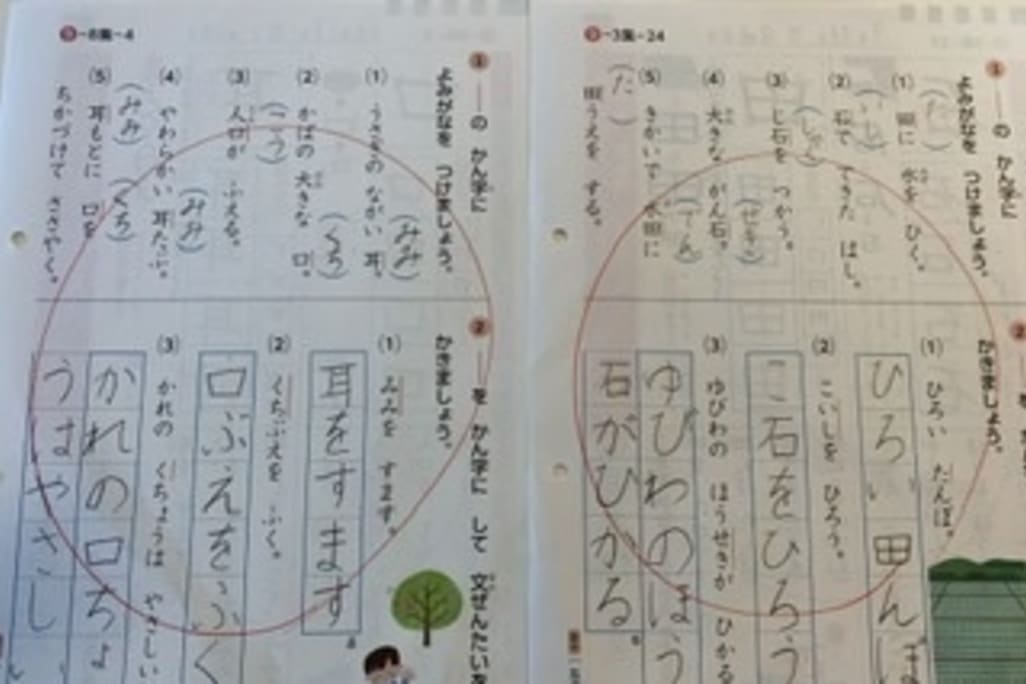 5-3集-24
1 ――の かん字に
よみがなを つけましょう。
(1) 田に 水を ひく。
(た)
(2) 石で できた はし。
(いし)
(3) じ石を つかう。
(しゃく)
(4) 大きな がん石。
(せき)
(5) きかいで 水田に
(でん)
田うえを する。
(た)
かきましょう。
(1) ひろい たんぼ。
ひろい田んぼ
(2) こいしを ひろう。
こ石をひろう
(3) ゆびわの ほうせきが ひかる
ゆびわのほう
石がひかる
5-8集-4
1 ――の かん字に
よみがなを つけましょう。
(1) うさぎの ながい 耳。
(みみ)
(2) かばの 大きな 口。
(くち)
(3) 人口が ふえる。
(こう)
(4) やわらかい 耳たぶ。
(みみ)
(5) 耳もとに 口を
(みみ)(くち)
ちかづけて ささやく。
2 ――を かん字に して 文ぜんたいを
かきましょう。
(1) みみを すます。
耳をすます
(2) くちぶえを ふく。
口ぶえをふく
(3) かれの くちょうは やさしい
かれの口ちょ
うはやさし